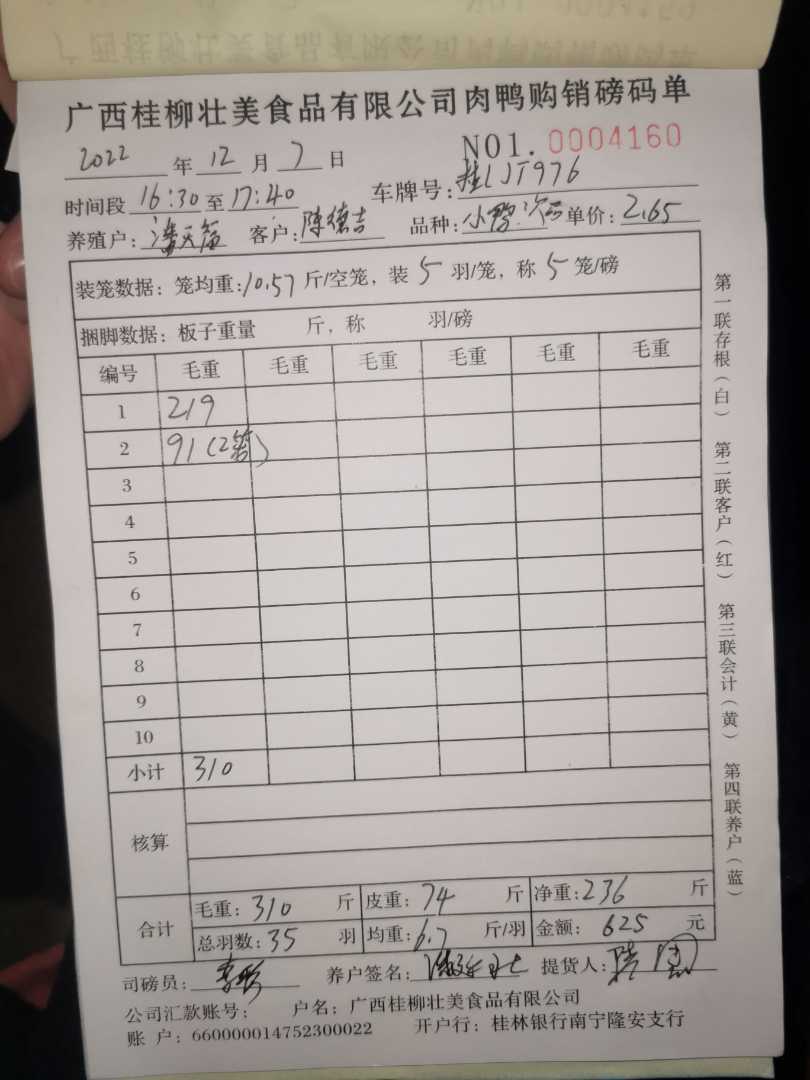 广西桂柳壮美食品有限公司肉鸭购销磅码单
2022 年 12 月 7 日 NO1. 0004160
时间段 16:30 至 17:40 车牌号: 桂LJT976
养殖户: 客户: 陈德吉 品种: 小鸭 次品 单价: 2.65
装笼数据: 笼均重: 10.57 斤/空笼, 装 5 羽/笼, 称 5 笼/磅
捆脚数据: 板子重量 斤, 称 羽/磅
编号 毛重 毛重 毛重 毛重 毛重 毛重
1 219
2 91 (2笼)
3
4
5
6
7
8
9
10
小计 310
核算
合计 毛重: 310 斤 皮重: 74 斤 净重: 236 斤
总羽数: 35 羽 均重: 6.7 斤/羽 金额: 625 元
司磅员: 养户签名: 提货人:
公司汇款账号: 户名: 广西桂柳壮美食品有限公司
账 户: 660000014752300022 开户行: 桂林银行南宁隆安支行
第一联存根(白) 第二联客户(红) 第三联会计(黄) 第四联养户(蓝)